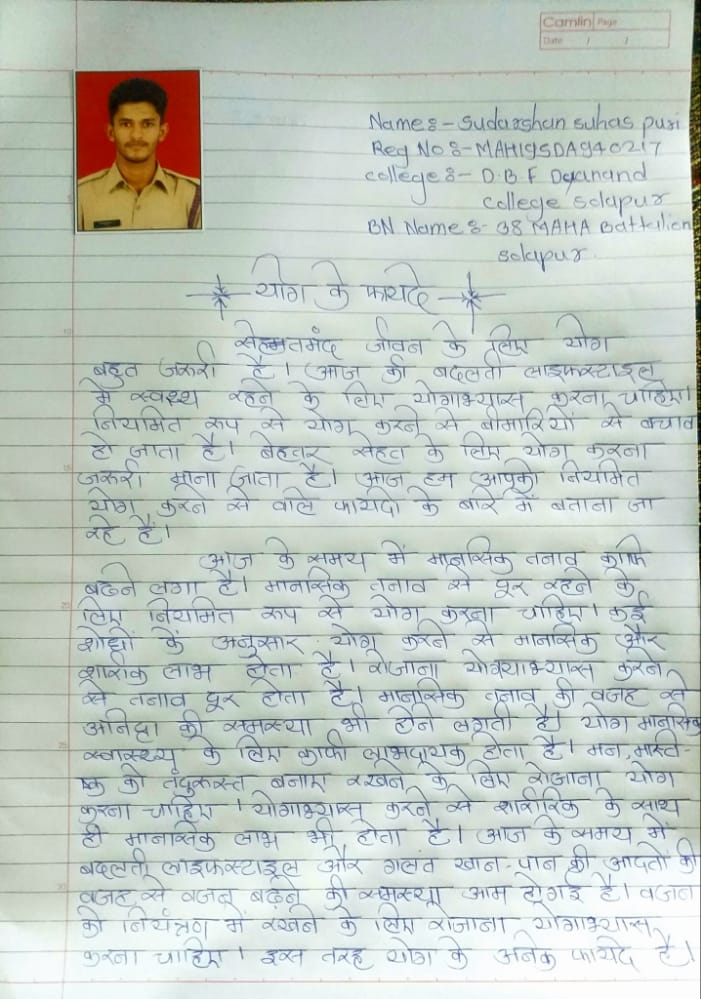 Camlin Page
Date / /
Name :- Sudarshan suhas puri
Reg No :- MAH19SDA940217
college :- D.B.F Dayanand
college solapur
BN Name :- 38 MAHA Battalion
solapur.
योग के फायदे
सेहतमंद जीवन के लिए योग
बहुत जरुरी है। आज की बदलती लाइफस्टाइल
में स्वस्थ रहने के लिए योगाभ्यास करना चाहिए।
नियमित रूप से योग करने से बीमारियों से बचाव
हो जाता है। बेहतर सेहत के लिए योग करना
जरूरी माना जाता है। आज हम आपको नियमित
योग करने से वाले फायदो के बारे में बताना जा
रहे हैं।
आज के समय में मानसिक तनाव काफि
बढने लगा है। मानसिक तनाव से दूर रहने के
लिए नियमित रूप से योग करना चाहिए। कई
शोधों के अनुसार योग करने से मानसिक और
शारीक लाभ होता है। रोजाना योगयाभ्यास करने
से तनाव दूर होता है। मानसिक तनाव की वजह से
अनिद्रा की समस्या भी होने लगती है। योग मानसिक
स्वास्थ्य के लिए काफी लाभदायक होता है। मन, मस्ति-
ष्क को तंदुरूस्त बनाए रखने के लिए रोजाना योग
करना चाहिए । योगाभ्यास करने से शारीरिक के साथ
ही मानसिक लाभ भी होता है। आज के समय में
बदलती लाइफस्टाइल और गलत खान-पान की आदतों की
वजह से वजन बढ़ने की समस्या आम होगई है। वजन
को नियंत्रण में रखने के लिए रोजाना योगाभ्यास
करना चाहिए । इस तरह योग के अनेक फायदे है।